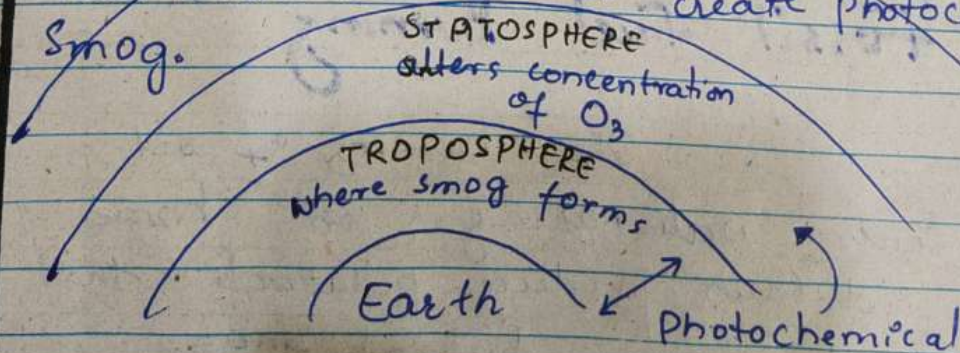 create photoc
smog.
STATOSPHERE
alters concentration
of O₃
TROPOSPHERE
where smog forms
Earth
photochemical